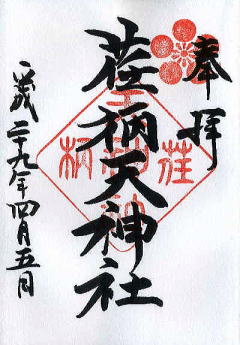 奉拝
荏柄天神社
平成二十九年四月五日